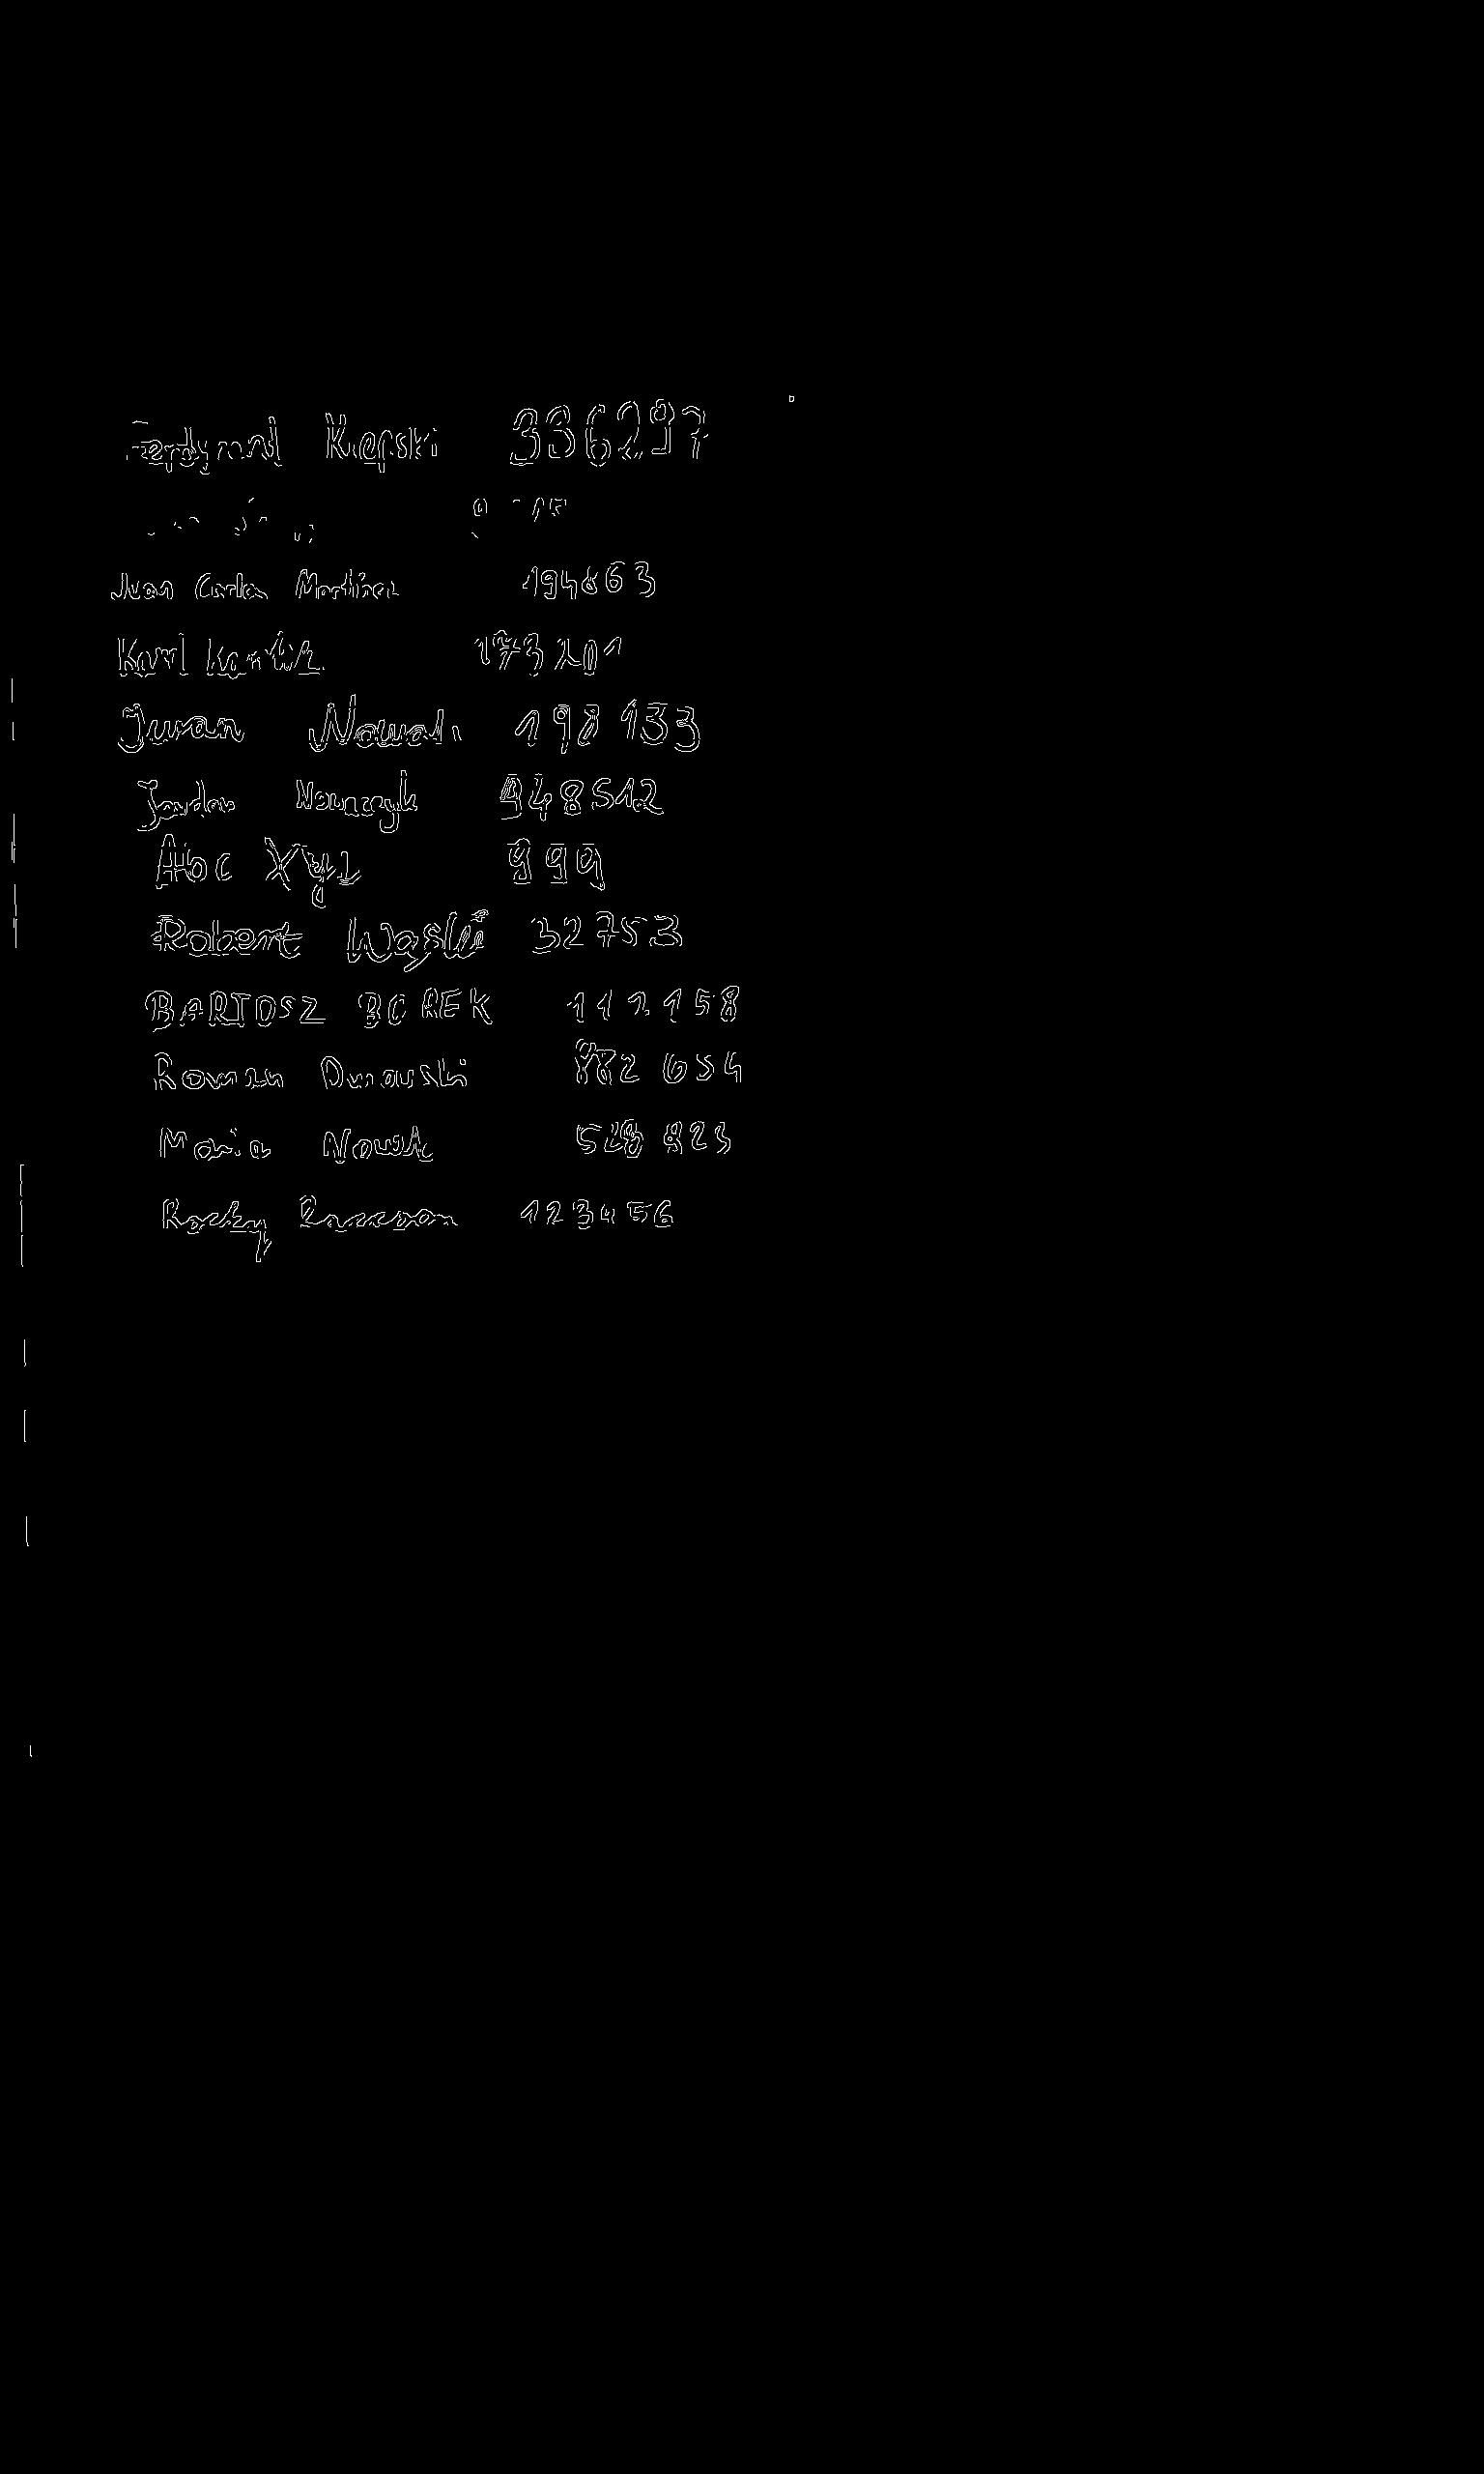 Ferdynand Kiepski 336297
Juan Carlos Martinez 194663
Karl 173201
Juran Nowak 198133
Jordan Nowaczyk 948512
Abc Xyz 999
Robert 32753
BARTOSZ BOREK 112158
Roman Dmowski 882 654
Maria Nowak 528 823
Rocky Raccoon 123456